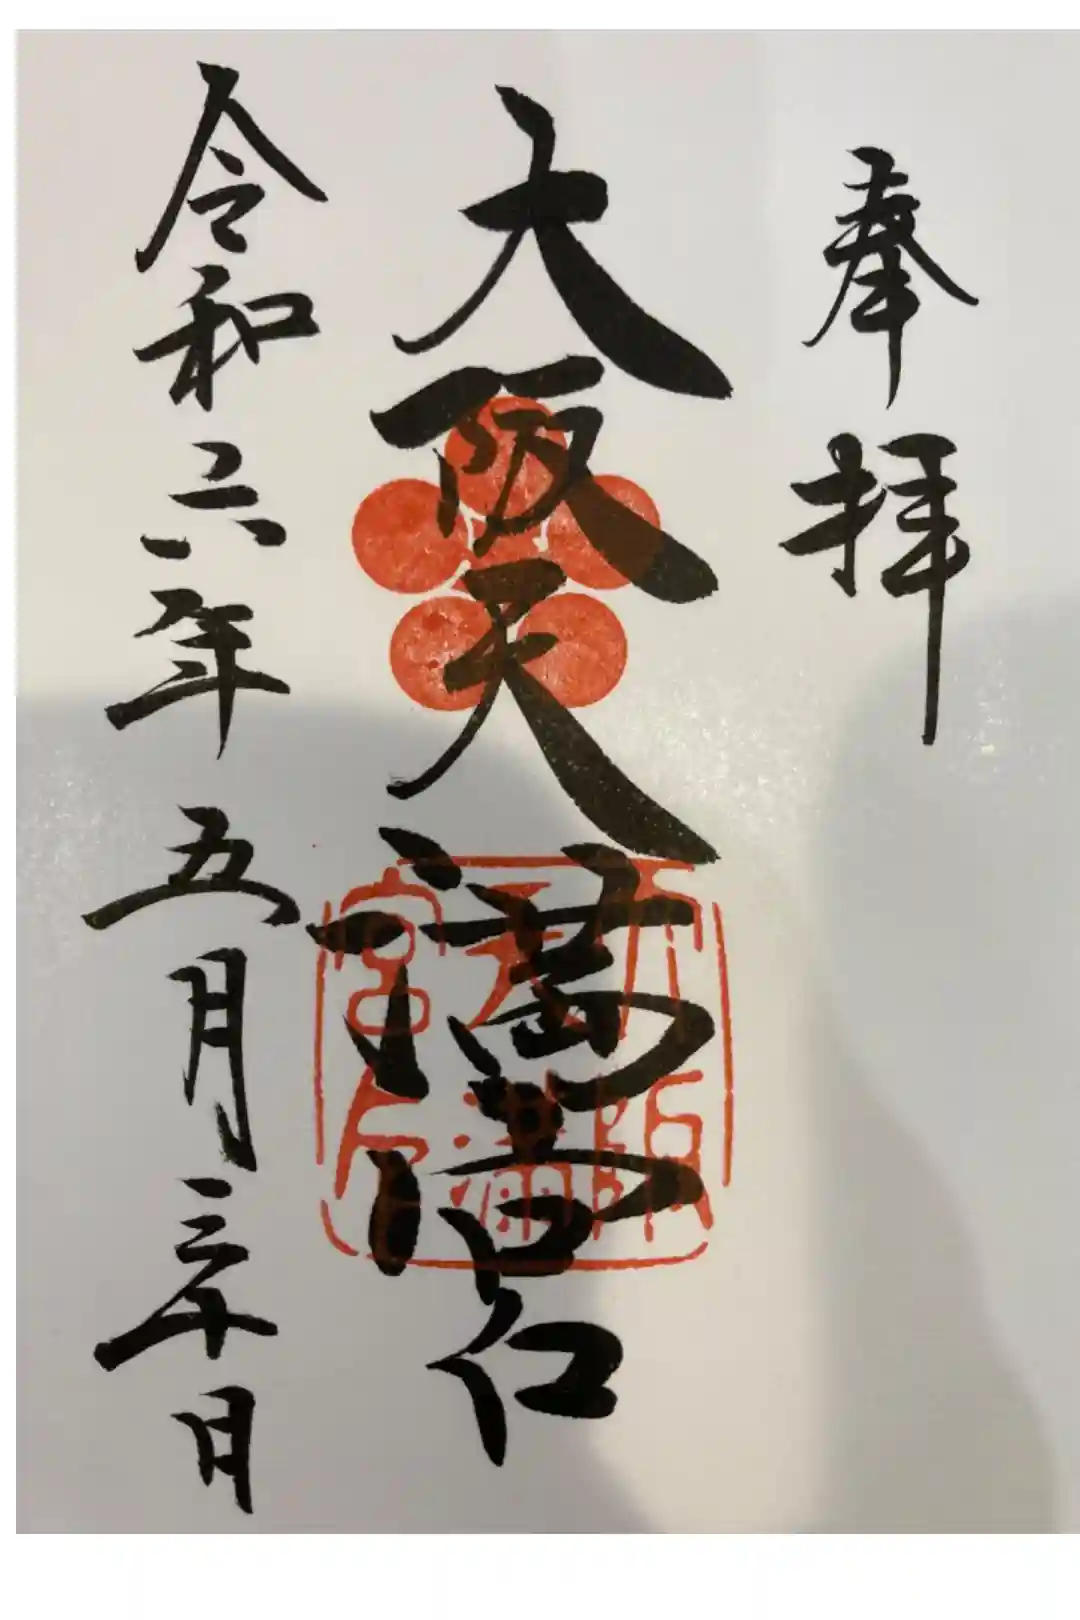 奉拝
大阪天満宮
大阪天満宮印
令和六年五月三十日